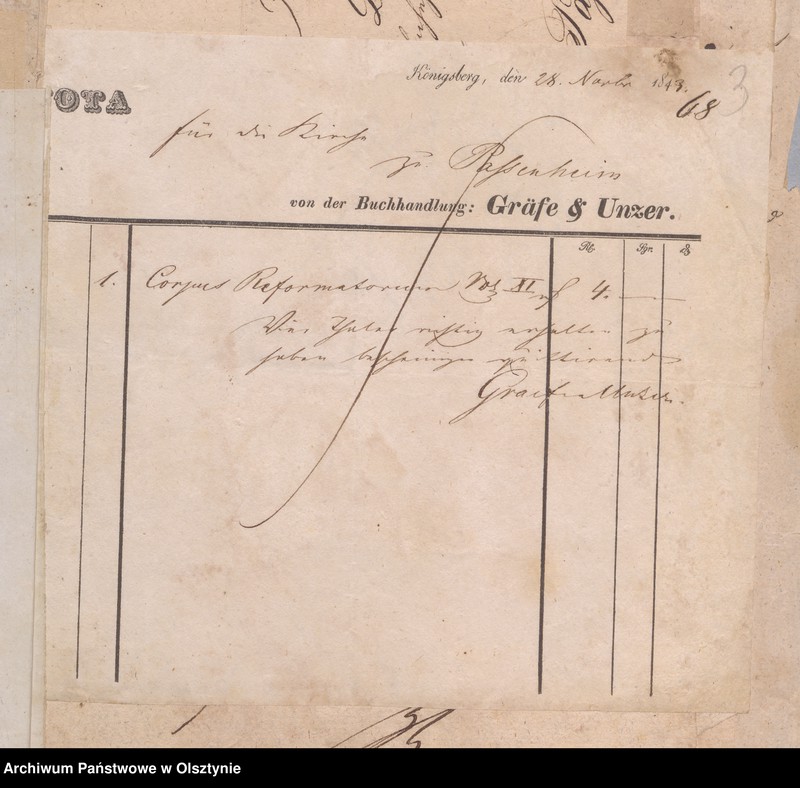 Königsberg, den 28. Novbr 1843.
3
68
NOTA
für die Kirche
zu Passenheim
von der Buchhandlung: Gräfe & Unzer.
Rt. Sgr. ₰
1. Corpus Reformatorum Vol XI 4. —
Vier Thaler richtig erhalten zu
haben bescheinigen quittirend
Graefe u Unzer.
Archiwum Państwowe w Olsztynie